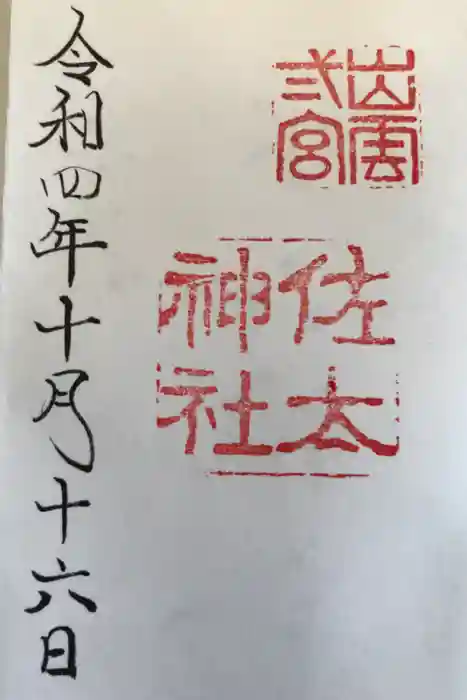 出雲
弐宮
佐太
神社
令和四年十月十六日